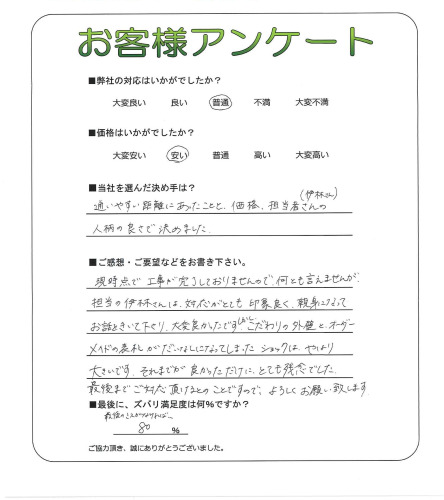 お客様アンケート
■弊社の対応はいかがでしたか？
大変良い 良い 普通 不満 大変不満
■価格はいかがでしたか？
大変安い 安い 普通 高い 大変高い
■当社を選んだ決め手は？
(伊林さん)
通いやすい距離にあったことと、価格、担当者さんの
人柄の良さで決めました。
■ご感想・ご要望などをお書き下さい。
現時点で工事が完了しておりませんので、何とも言えませんが、
担当の伊林さんは、対応がとても印象良く、親身になって
お話をきいて下さり、大変良かったです。しかし、こだわりの外壁と、オーダー
メイドの表札がだいなしになってしまったショックは、やはり
大きいです。それまでが良かっただけに、とても残念でした。
最後までご対応頂けるとのことですので、よろしくお願い致します
■最後に、ズバリ満足度は何％ですか？
80 ％
ご協力頂き、誠にありがとうございました。